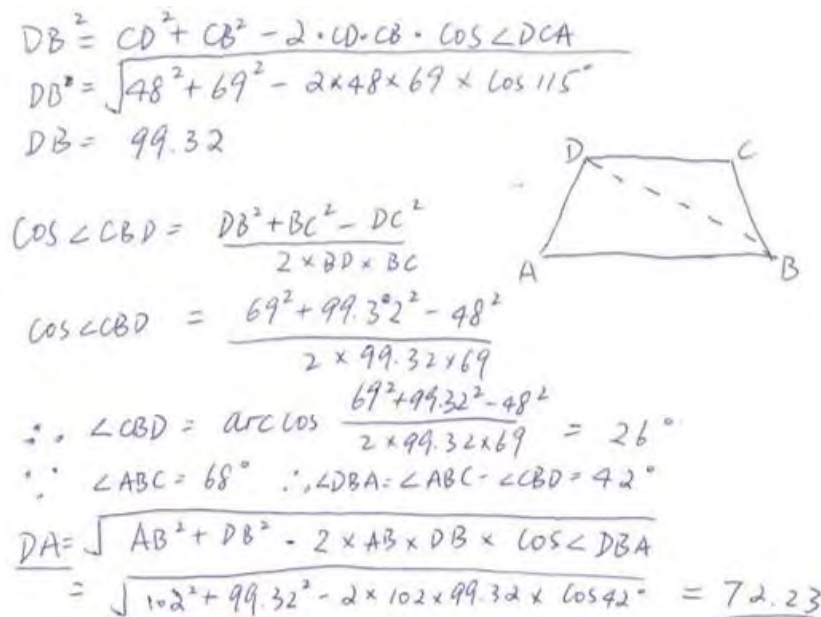 DB² = CD² + CB² - 2·CD·CB·COS∠DCA
DB² = √48² + 69² - 2×48×69×cos 115°
DB = 99.32
D C
A B
COS∠CBD = DB² + BC² - DC² / 2 × BD × BC
cos∠CBD = 69² + 99.32² - 48² / 2 × 99.32 × 69
∴ ∠CBD = arc cos 69² + 99.32² - 48² / 2 × 99.32 × 69 = 26°
∵ ∠ABC = 68° ∴ ∠DBA = ∠ABC - ∠CBD = 42°
DA = √AB² + DB² - 2 × AB × DB × COS∠DBA
= √102² + 99.32² - 2 × 102 × 99.32 × cos 42° = 72.23